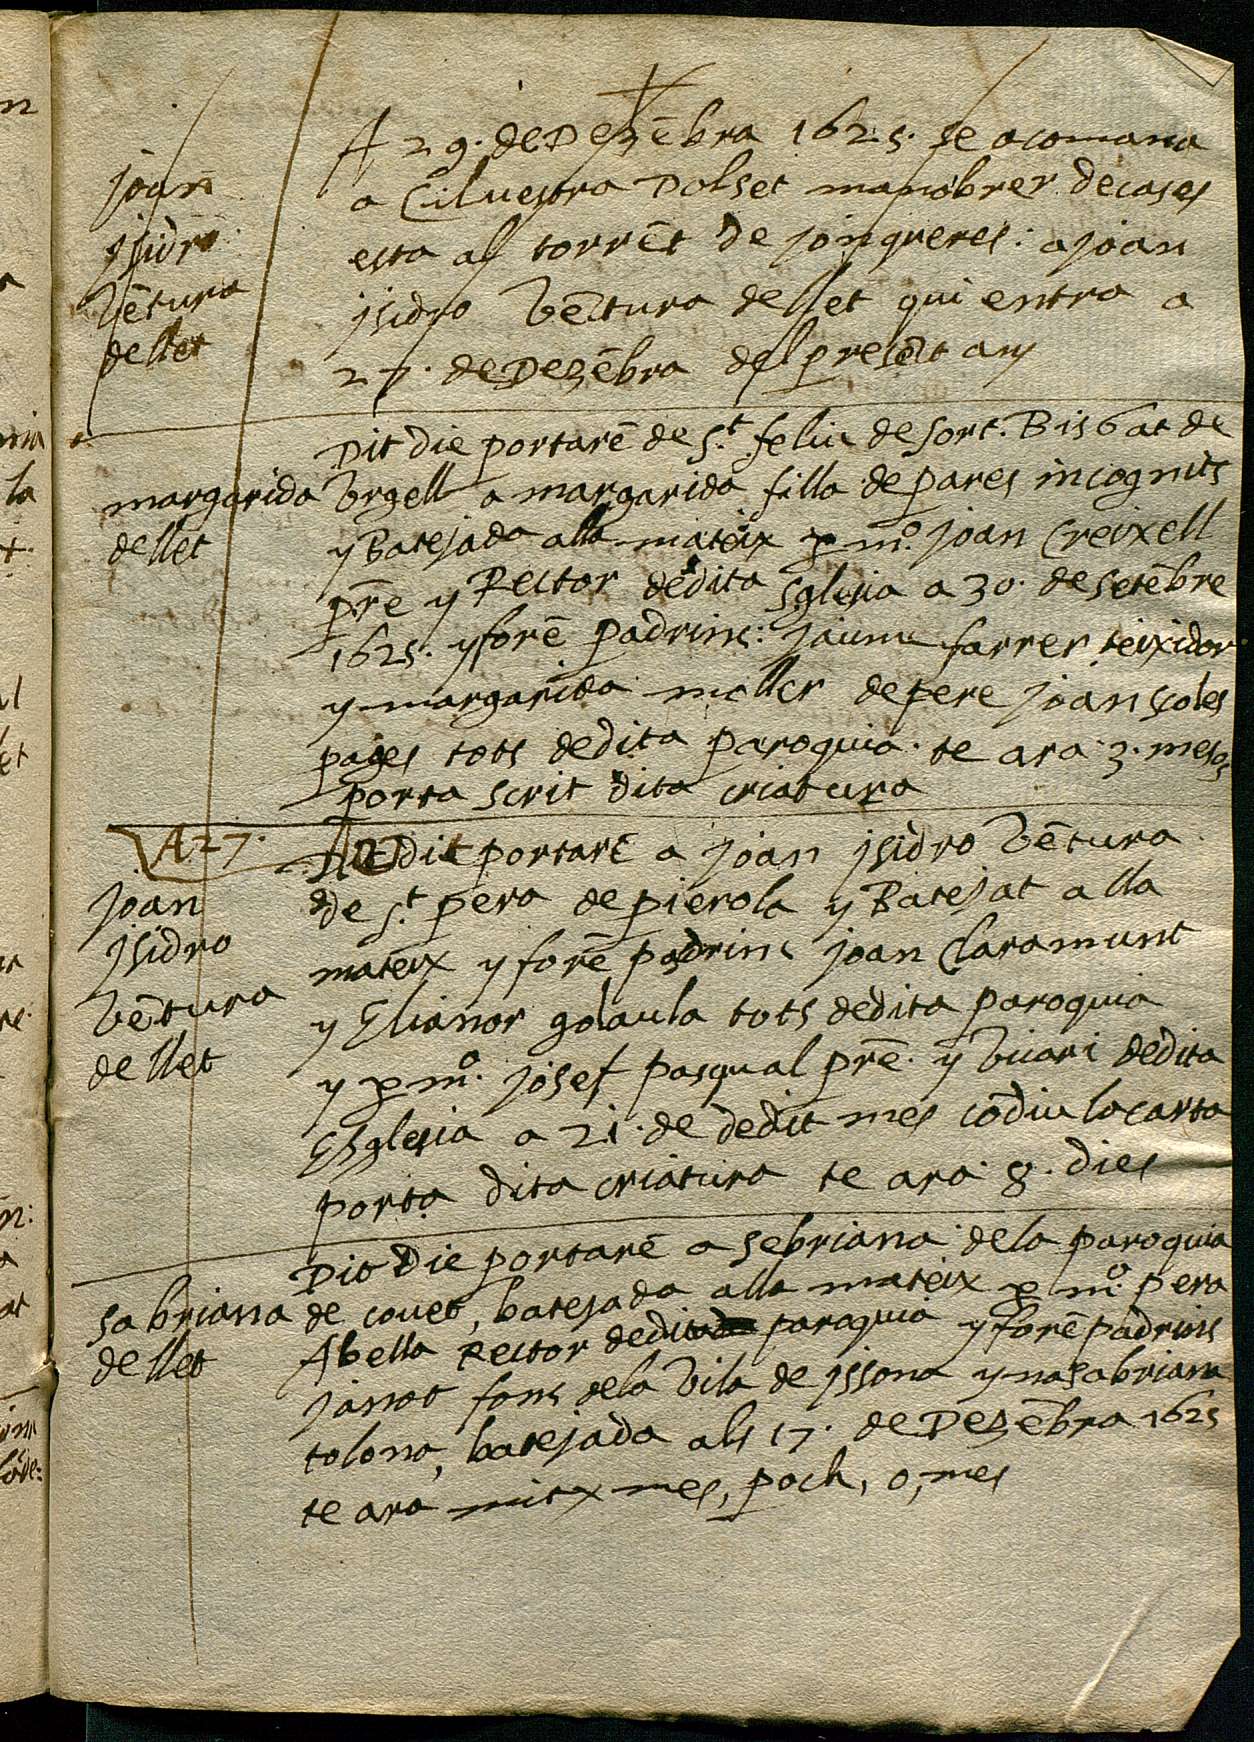 A 29. de Dezẽbra 1625. se acomana
a Cilvestra Dolset manobrer de cases
esta al torrẽt de jonqueres: a joan
jsidro vẽtura de llet qui entra a
27. de Dezẽbra del presẽt any
joan
jsidro
vẽtura
de llet
Dit die portarẽ de S.t feliu de sort. Bisbat de
Vrgell a margarida filla de pares incognits
y Batejada alla mateix p mº. joan Creixell
pre y Rector dedita sglesia a 30. de setẽbre
1625. y forẽ padrins: jaume farrer teixidor
y margarida moller de pere joan scoles
pages tots dedita paroquia. te ara 3. mesos
porta scrit dita criatura
margarida
de llet
A 27.
Dit die portarẽ a joan jsidro vẽtura
de S.t pera de pierola y Batejat alla
mateix y forẽ padrins joan Claramunt
y Elianor golaula tots dedita paroquia
y p mº. josef pasqual prẽ. y vicari dedita
Esglesia a 21. de dedit mes cõdiu la carta
porta dita criatura te ara 8. dies
joan
jsidro
vẽtura
de llet
Dit Die portarẽ a sebriana de la paroquia
de covet, batejada alla mateix p mº. pera
Abella Rector dedita paroquia y forẽ padrins
janot fons dela vila de jssona y na sabriana
tolona, batejada als 17. de Dezẽbra 1625
te ara mitx mes, poch, o, mes
sabriana
de llet